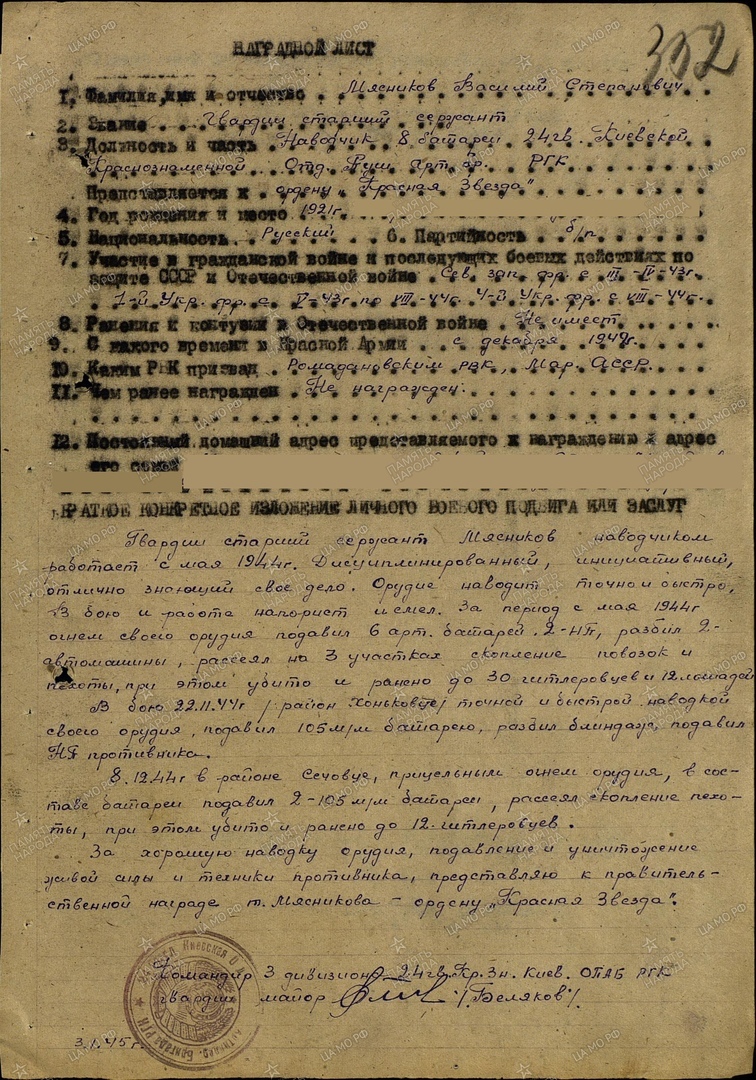 352
НАГРАДНОЙ ЛИСТ
1. Фамилия, имя и отчество Мясников Василий Степанович
2. Звание Гвардии старший сержант
3. Должность и часть Наводчик 8 батареи 24 гв. Киевской
Краснознаменной Отд. Пуш. Арт. Бр. РГК
Представляется к ордену "Красная Звезда"
4. Год рождения и место 1921г.
5. Национальность Русский 6. Партийность б/п
7. Участие в гражданской войне и последующих боевых действиях по
защите СССР и Отечественной войне Сев. зап. фр. с III-IV-43г.
1-й Укр. фр. с V-43г. по VIII-44г. 4-й Укр. фр. с VIII-44г.
8. Ранения и контузии в Отечественной войне Не имеет
9. С какого времени в Красной Армии с декабря
10. Каким РВК призван Ромодановским рвк, Мор. АССР.
11. Чем ранее награжден Не награжден
12. Постоянный домашний адрес представляемого к награждению и адрес
его семьи
КРАТКОЕ КОНКРЕТНОЕ ИЗЛОЖЕНИЕ ЛИЧНОГО БОЕВОГО ПОДВИГА ИЛИ ЗАСЛУГ
Гвардии старший сержант Мясников наводчиком
работает с мая 1944г. Дисциплинированный, инициативный,
отлично знающий свое дело. Орудие наводит точно и быстро,
В бою и работе напорист и смел. За период с мая 1944г
огнем своего орудия подавил 6 арт. батарей, 2-НП, разбил 2-
автомашины, рассеял на 3 участках скопление повозок и
пехоты, при этом убито и ранено до 30 гитлеровцев и 12 лошадей
В бою 22.11.44г /район Хоньковце/ точной и быстрой наводкой
своего орудия, подавил 105 м/м батарею, разбил блиндаж, подавил
НП противника.
8.12.44г в районе Сечовце, прицельным огнем орудия, в сос-
таве батареи подавил 2-105 м/м батареи, рассеял скопление пехо-
ты, при этом убито и ранено до 12-гитлеровцев.
За хорошую наводку орудия, подавление и уничтожение
живой силы и техники противника, представляю к правитель-
ственной награде т. Мясникова - ордену „Красная Звезда".
Командир 3 дивизиона 24 гв. Кр. Зн. Киев. ОПАБ РГК
гвардии майор /Беляков/.
3.1.45г.